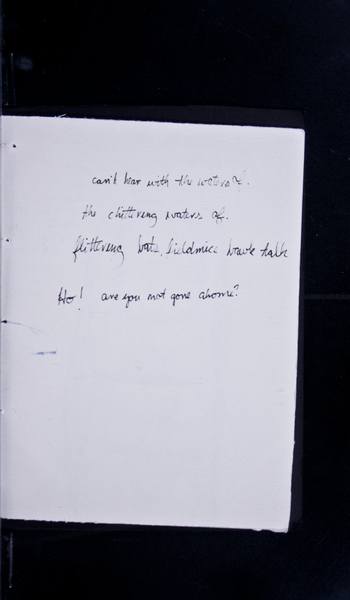 can't hear with the waters of.
the chittering waters of.
flittering bats, fieldmice bawk talk
Ho! are you not gone ahome?